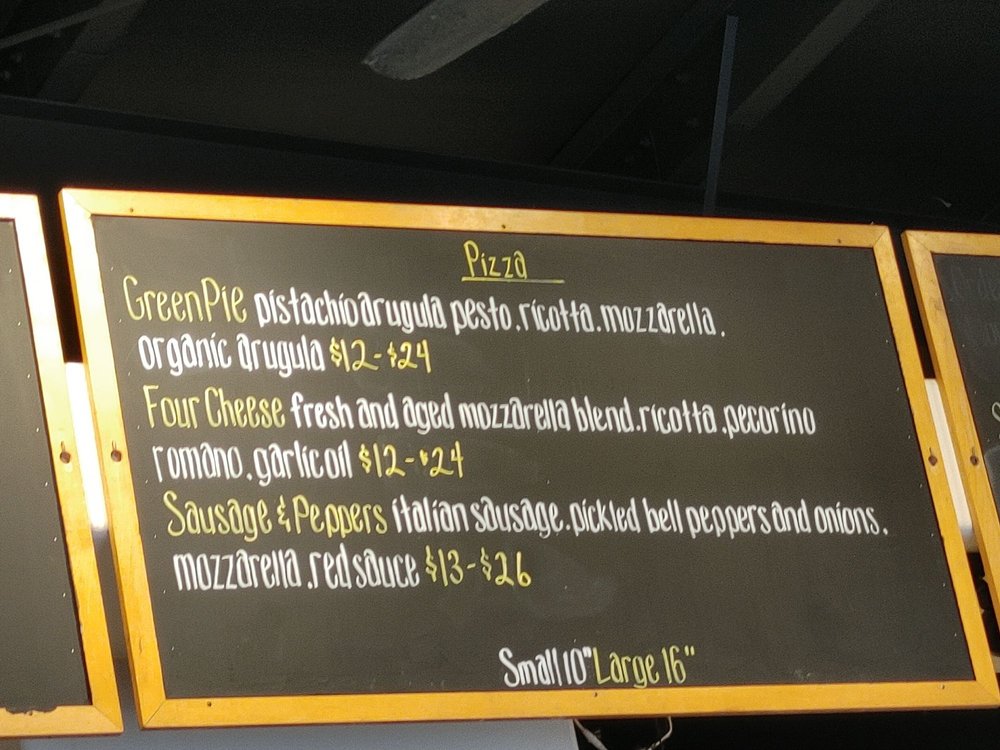 Pizza
Green Pie pistachio arugula pesto. ricotta. mozzarella.
organic arugula $12-$24
Four Cheese fresh and aged mozzarella blend. ricotta. pecorino
romano. garlic oil $12-$24
Sausage & Peppers italian sausage. pickled bell peppers and onions.
mozzarella. red sauce $13-$26
Small 10" Large 16"